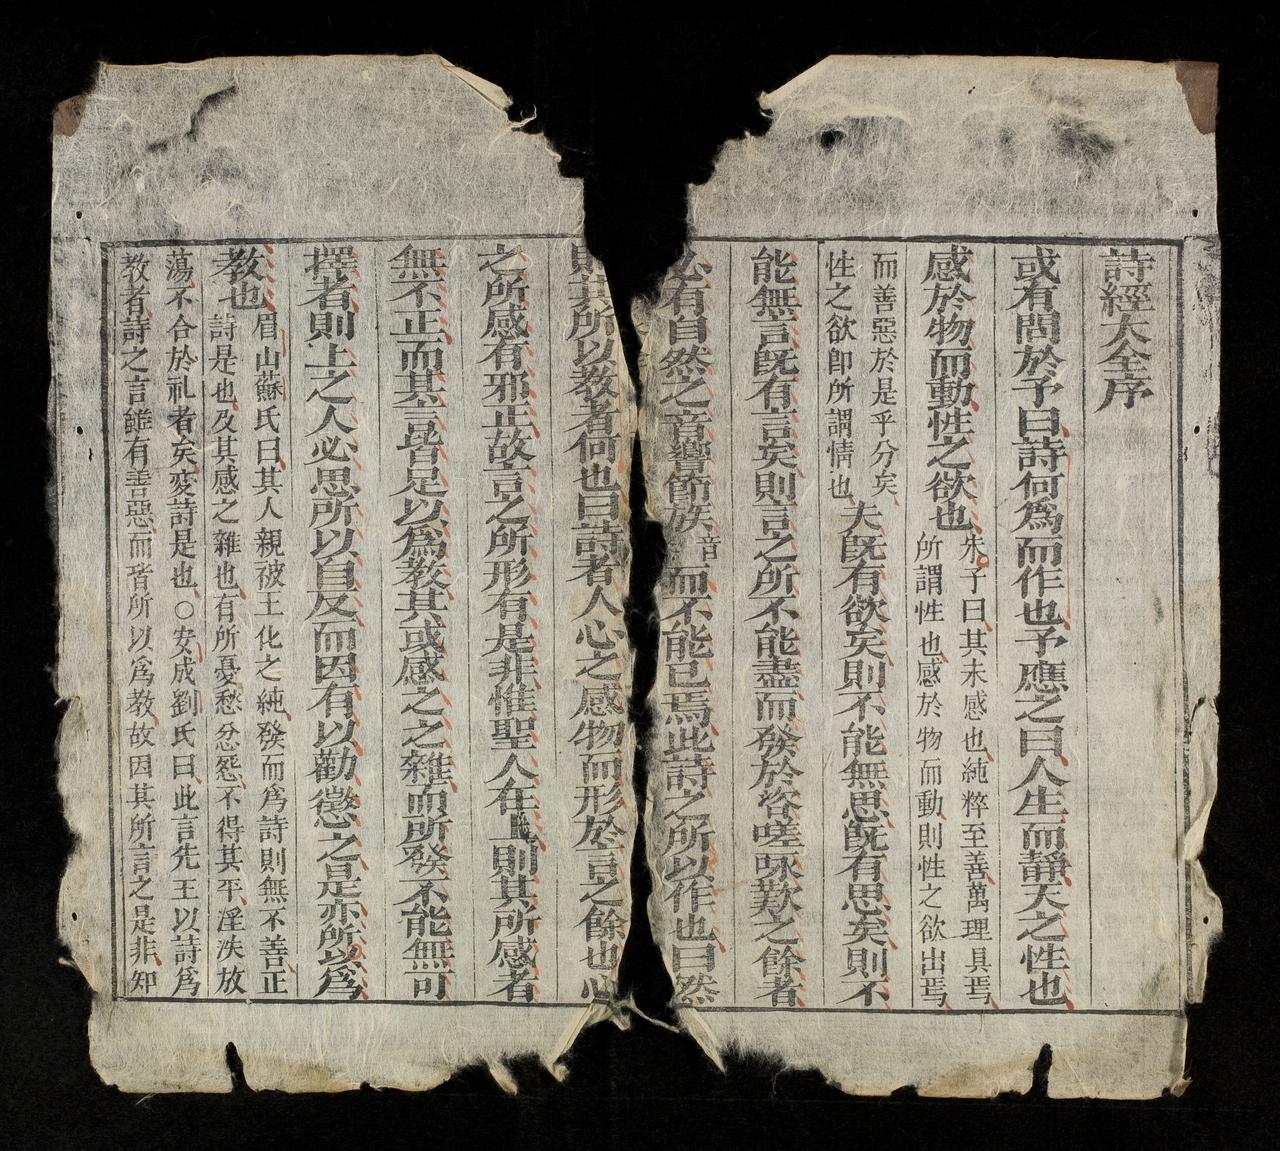 詩經大全序
或有問於予曰詩何爲而作也予應之曰人生而靜天之性也
感於物而動性之欲也
朱子曰其未感也純粹至善萬理具焉
所謂性也感於物而動則性之欲出焉
而善惡於是乎分矣
性之欲卽所謂情也
夫旣有欲矣則不能無思旣有思矣則不
能無言旣有言矣則言之所不能盡而發於咨嗟咏歎之餘者
必有自然之音響節族
音
而不能已焉此詩之所以作也曰然
則其所以教者何也曰詩者人心之感物而形於言之餘也心
之所感有邪正故言之所形有是非惟聖人在上則其所感者
無不正而其言皆足以爲教其或感之之雜而所發不能無可
擇者則上之人必思所以自反而因有以勸懲之是亦所以爲
教也
眉山蘇氏曰其人親被王化之純發而爲詩則無不善正
詩是也及其感之雜也有所憂愁忿怨不得其平淫泆放
蕩不合於礼者矣変詩是也○安成劉氏曰此言先王以詩爲
教者詩之言雖有善惡而皆所以爲教故因其所言之是非知